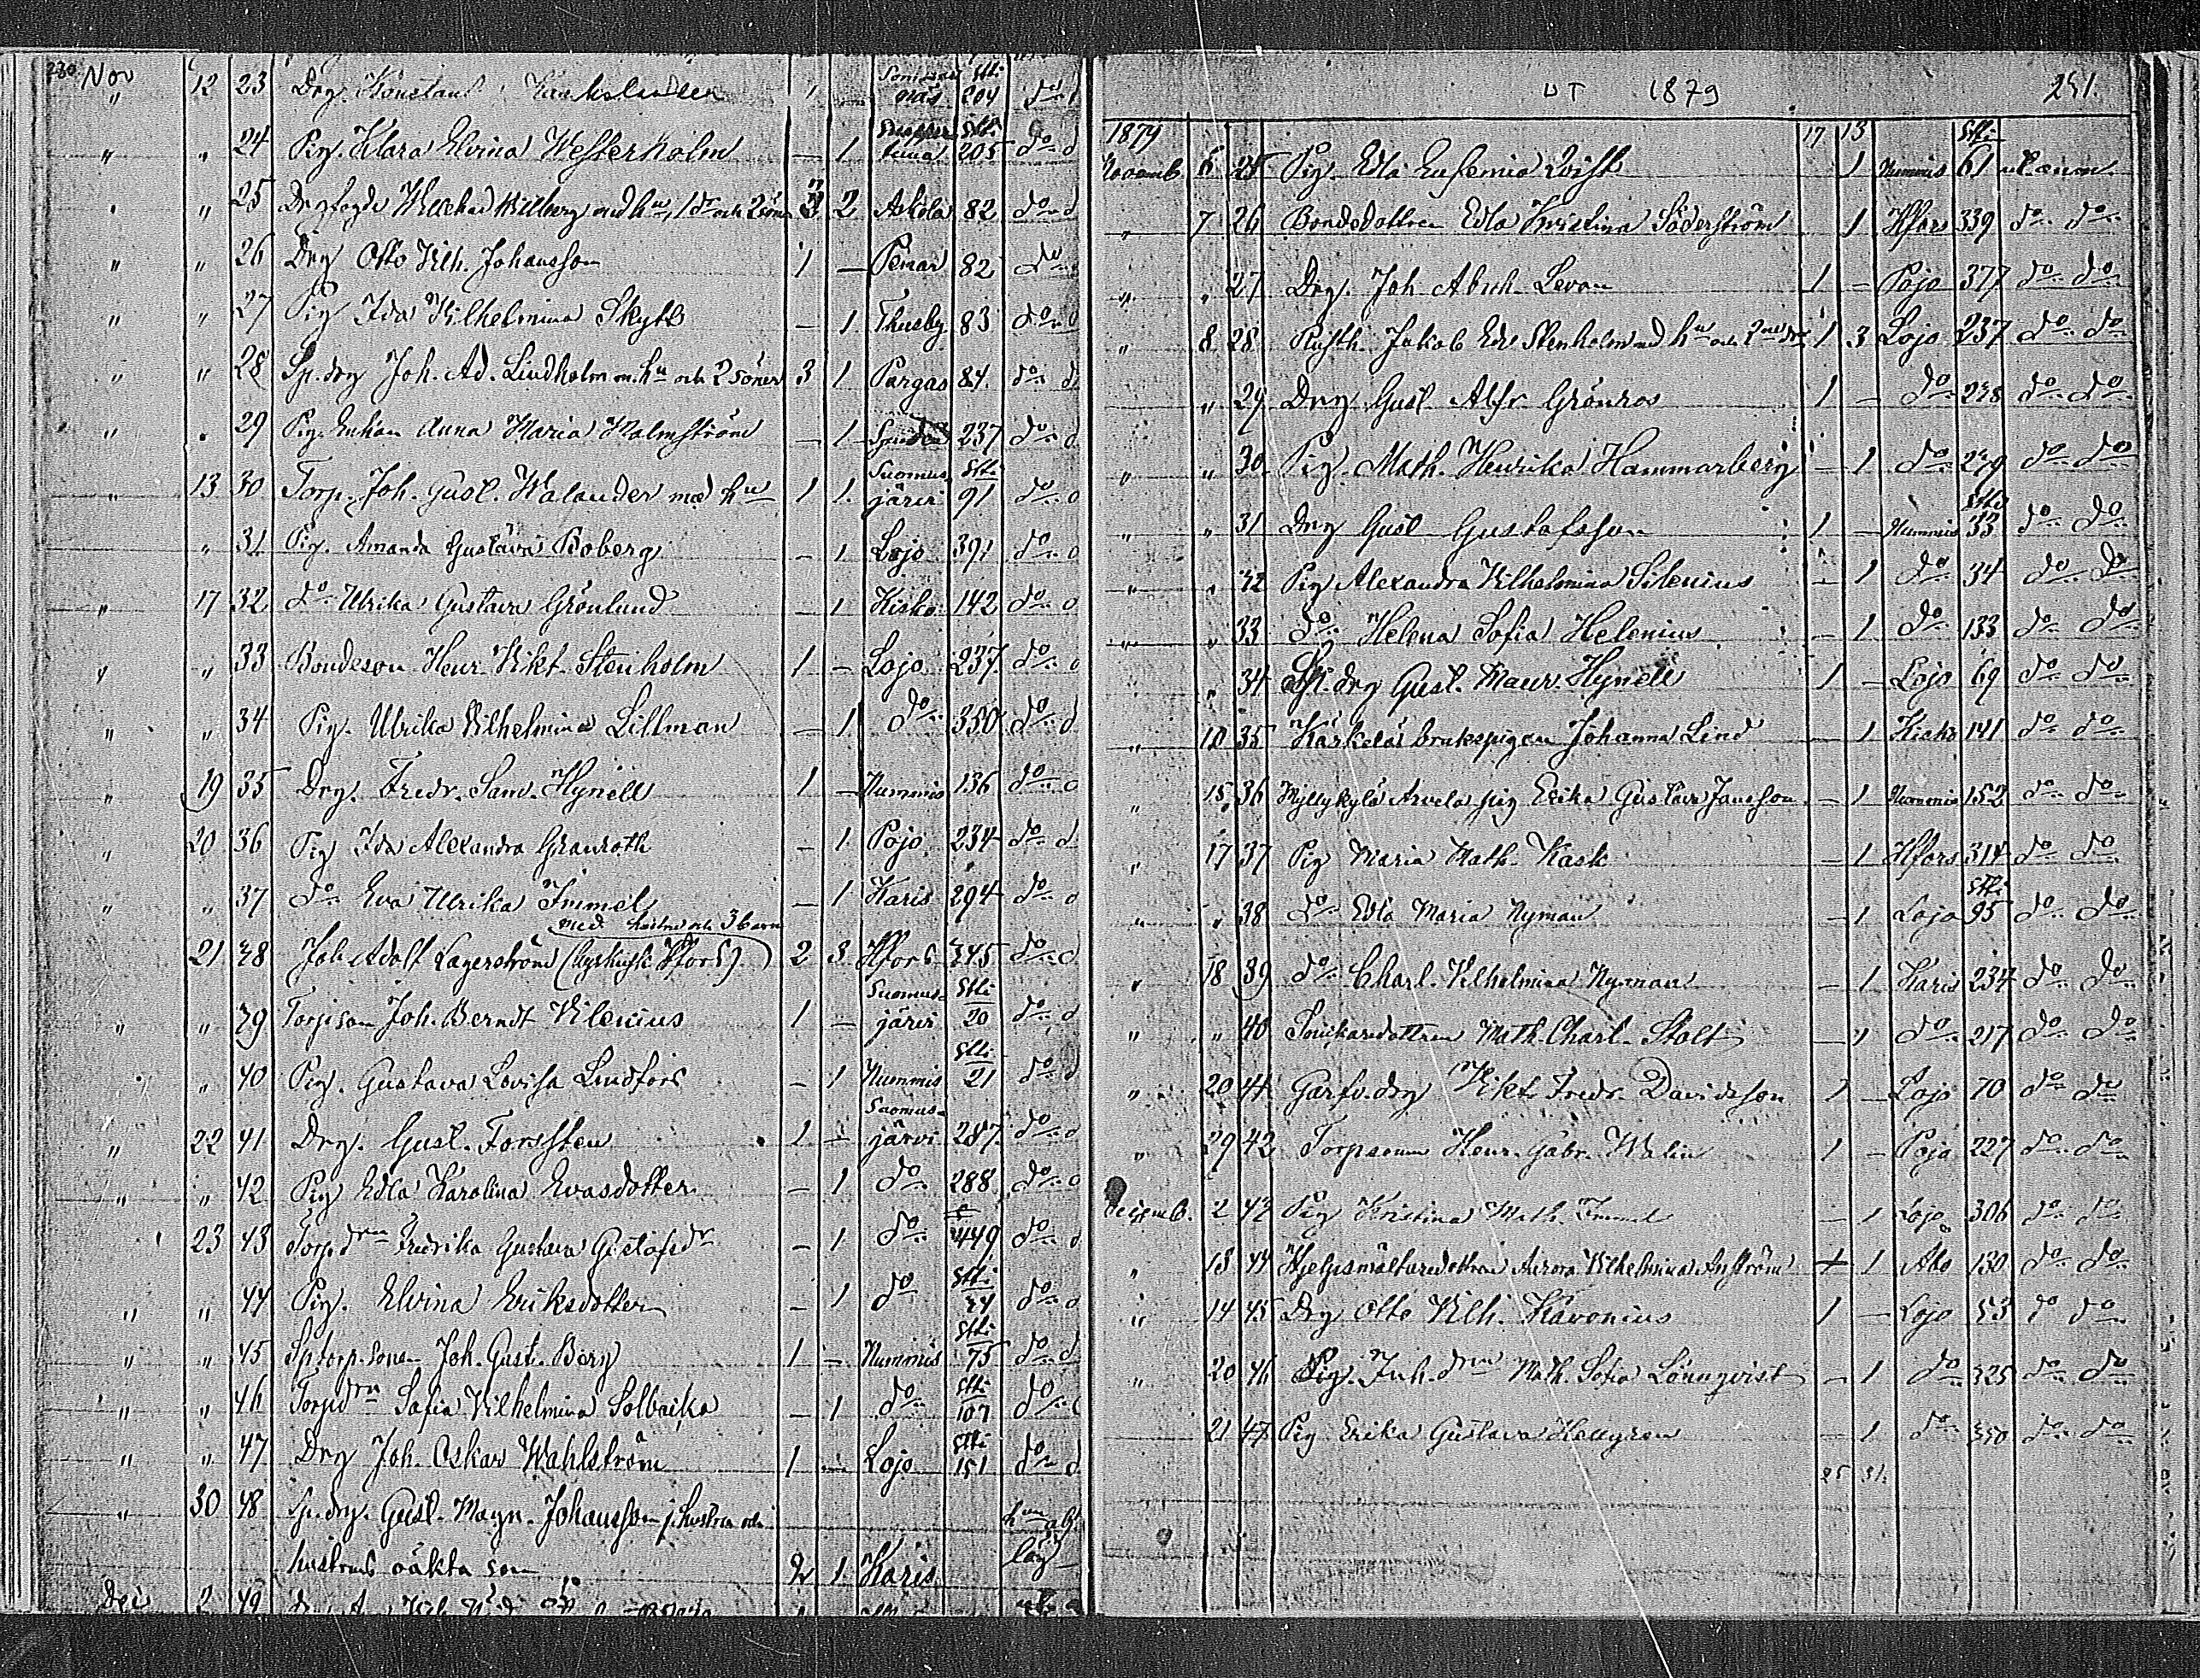 230 Nov 12 23 Drg. Konstant 1 — näs 204 do
" " 24 Pig. Klara Elvina Westerholm — 1 205 do d
" " 25 Michael Willberg med hu, 1 dr och 2 söner 3 2 Askola 82 do d
" " 26 Drg Otto Vilh. Johansson 1 — Pemar 82 do
" " 27 Pig Ida Vilhelmina Skytt — 1 Thusby 83 do
" " 28 Sp. drg Joh. Ad. Lindholm m. hu och 2 söner 3 1 Pargas 84 do d
" " 29 Pig. Enkan Anna Maria Malmström — 1 237 do d
Suomus Etti
" 13 30 Torp. Joh. Gust. Walander med hu 1 1 järvi 91 do
" 31 Pig. Amanda Gustava Boberg — 1 Lojo 391 do
" 17 32 do Ulrika Gustava Grönlund — 1 Kisko 142 do
" " 33 Bondeson Henr. Vikt. Stenholm 1 — Lojo 237 do
" " 34 Pig. Ulrika Vilhelmina Lillman — 1 do 350 do d
" 19 35 Drg. Fredr. Sam. Hynell 1 — Nummis 136 do
" 20 36 Pig Ida Alexandra Granroth — 1 Pojo 234 do d
" " 37 do Eva Ulrika Immel — 1 Karis 294 do
med hustru och 3 barn
21 38 Joh. Adolf Lagerström 2 3 Hfors 345 do
Suomus- Etti
" " 39 Torpson Joh. Berndt Vilenius 1 — järvi 20 do d
Etti
" 40 Pig. Gustava Lovisa Lindfors — 1 Nummis 21 do d
Suomus-
" 22 41 Drg. Gust. Forssten 1 — järvi 287 do
" " 42 Pig Edla Karolina Evasdotter — 1 do 288 do
23 43 Torpdrn Fredrika Gustava Gustafsdr — 1 do 449 do
Etti
" " 44 Pig. Elvina Eriksdotter — 1 do 74 do
Etti
" " 45 Sp torp. sonen Joh. Gust. Berg 1 — Nummis 75 do d
Etti
" " 46 Torpdrn Sofia Vilhelmina Solbacka — 1 do 107 do
Etti
" " 47 Drg Joh. Oskar Wahlström 1 — Lojo 151 do d
" 30 48 Sp. drg. Gust. Magn. Johansson j. hustru och
hustruns oäkta son 2 1 Karis
Dec 2 49
UT 1879 251.
1879 17 13 Etti
Novemb. 6 25 Pig. Edla Eufemia Qvist 1 Nummis 61
" 7 26 Bondedottren Edla Kristina Söderström 1 Hfors 339 do do
" " 27 Drg. Joh. Abrh. Levon 1 — Pojo 377 do do
" 8 28 Rusth. Jakob Edv. Stenholm med hu och 2 1 3 Lojo 237 do do
" 29 Drg Gust Alfr Grönros 1 — do 238 do do
" " 30 Pig. Math. Henrika Hammarberg — 1 do 279 do do
Etti
" " 31 Drg Gust Gustafsson 1 — Nummis 33 do do
" " 32 Pig. Alexandra Vilhelmina Silenius — 1 do 34 do do
" " 33 do Helena Sofia Helenius — 1 do 133 do do
" 34 Sp. drg Gust. Maur. Hynell 1 — Lojo 69 do do
" 10 35 Kärkelä bruks pigan Johanna Lind 1 Kisko 141 do do
" 15 36 Myllykylä Arvela pig Erika Gustava Jansson — 1 Nummis 152 do do
" 17 37 Pig Maria Math. Kask — 1 Hfors 314 do do
Etti
" " 38 do Edla Maria Nyman — 1 Lojo 95 do do
" 18 39 do Charl. Vilhelmina Nyman — 1 Karis 234 do do
" " 40 Math. Charl. Stolt — 1 do 217 do do
" 20 41 Garfv. drg Vikt. Fredr. Davidsson 1 — Lojo 70 do do
" 29 42 Torpsonen Henr. Gabr. Walin 1 — Pojo 227 do do
Decemb. 2 43 Pig Kristina Math. Immel — 1 Lojo 306 do do
" 13 44 Aurora Vilhelmina 1 Åbo 130 do do
" 14 45 Drg Otto Vilh. Karonius 1 — Lojo 53 do do
" 20 46 Pig. Inh. drn Math. Sofia Lönnqvist — 1 do 325 do do
21 47 Pig Erika Gustava Hellgren — 1 do 350 do do
25 31.